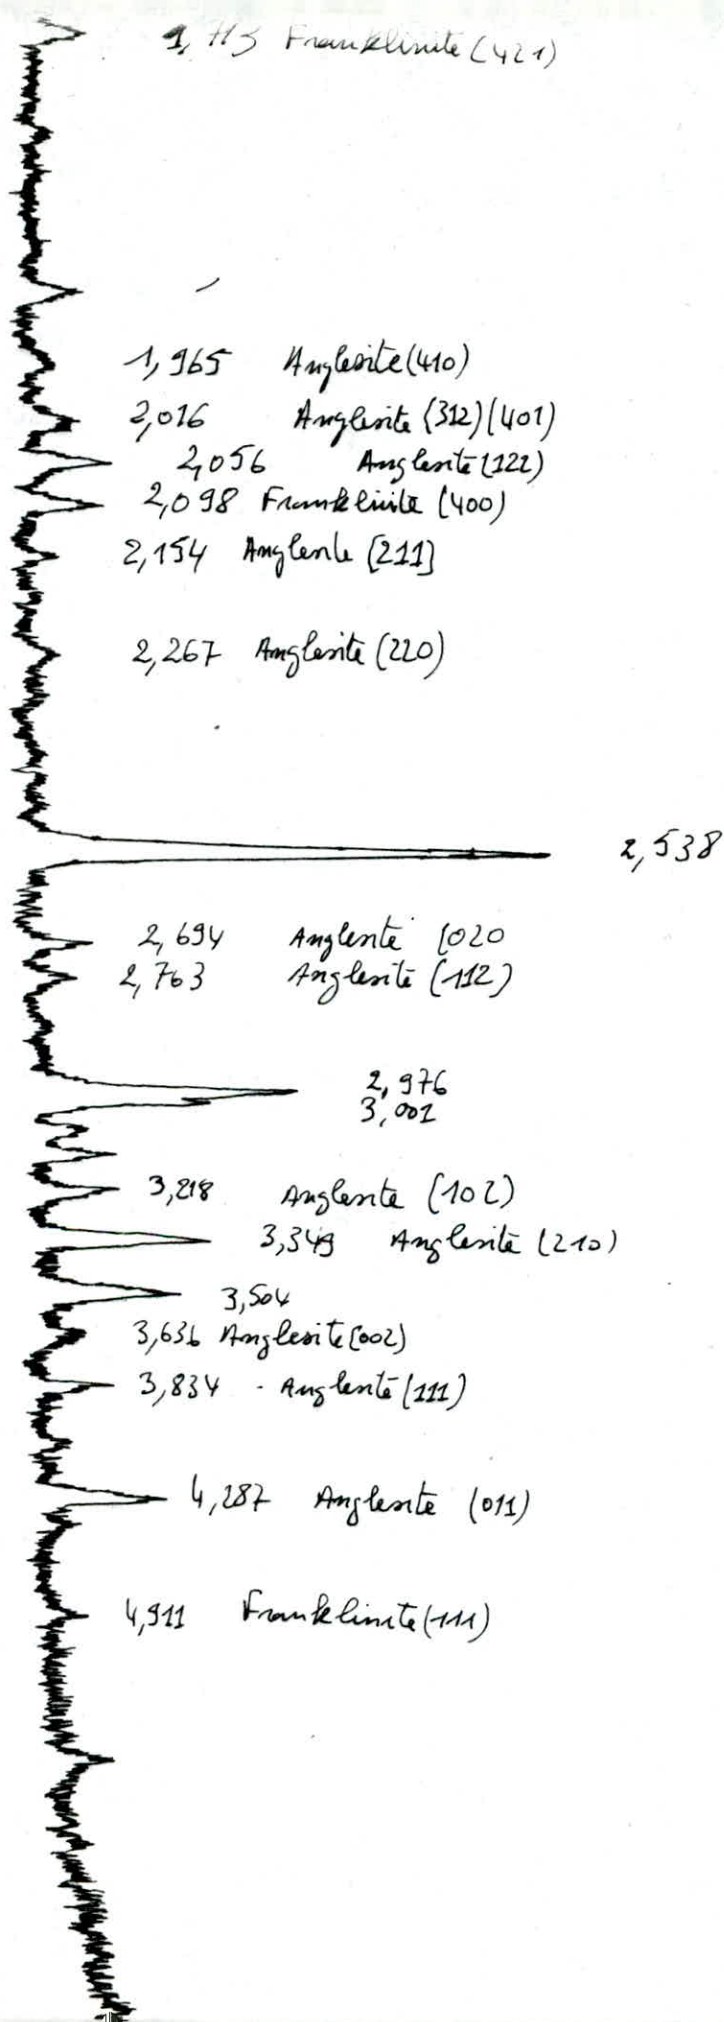 1,713 Franklinite (421)
1,965 Anglesite (410)
2,016 Anglesite (312) (401)
2,056 Anglesite (122)
2,098 Franklinite (400)
2,154 Anglesite [211]
2,267 Anglesite (220)
2,538
2,694 Anglesite (020
2,763 Anglesite (112)
2,976
3,001
3,218 Anglesite (102)
3,349 Anglesite (210)
3,504
3,636 Anglesite (002)
3,834 - Anglesite (111)
4,287 Anglesite (011)
4,911 Franklinite (111)